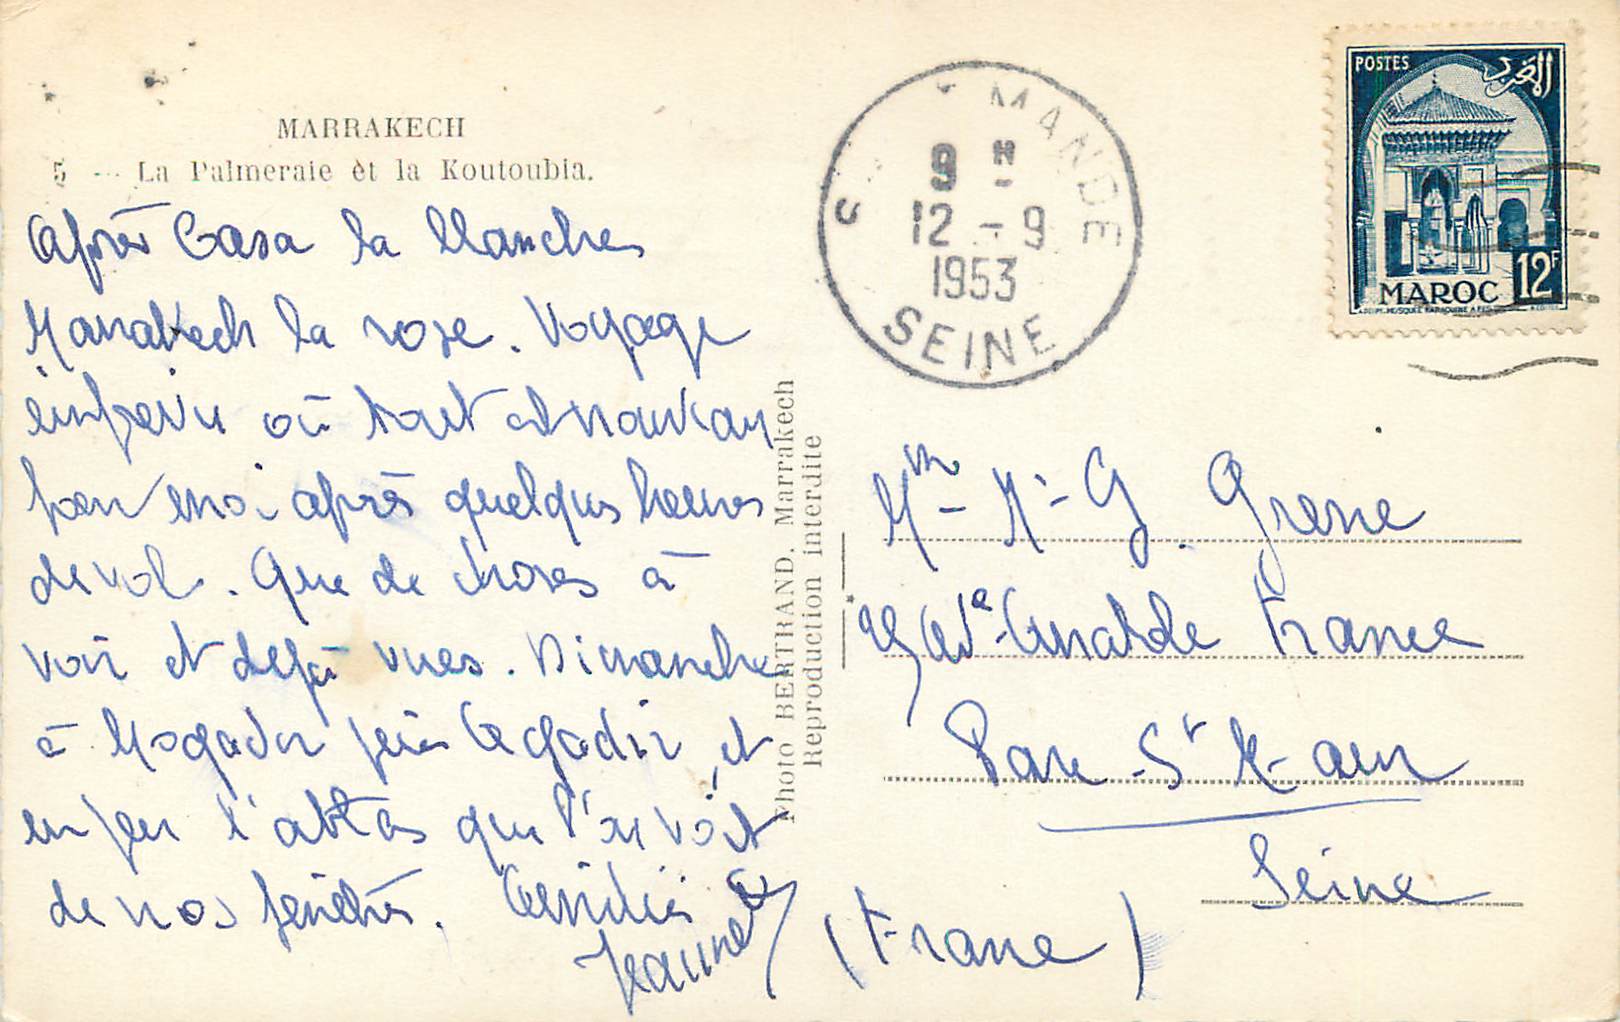 MARRAKECH
5 -- La Palmeraie èt la Koutoubia.
Après Casa la blanche,
Marrakech la rose. Voyage
où tout est nouveau
pour moi après quelques heures
de vol. Que de choses à
voir et déjà vues. Dimanche
à Mogador puis Agadir, et
enfin l'atlas que l'on voit
de nos fenêtres. Amitiés
Jeanne
Photo BERTRAND. Marrakech
Reproduction interdite
MANDE
9 H
12 - 9
1953
SEINE
POSTES
المغرب
12F
MAROC
Mme M. G. Grene
Anatole France
Parc St Maur
Seine
(France)